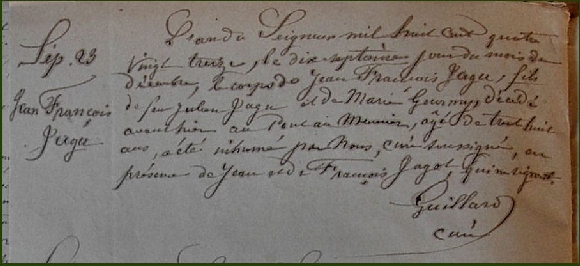 Sép. 23
Jean François
Jagu
L'an du Seigneur mil huit cent quatre
vingt treize, le dix septième jour du mois de
décembre, le corps de Jean François Jagu, fils
de feu Julien Jagu et de Marie décédé
avant hier au Pont au Meunier, âgé de huit
ans, a été inhumé par Nous, curé soussigné, en
présence de Jean et de François Jagot, qui ne signent.
Guillard
curé